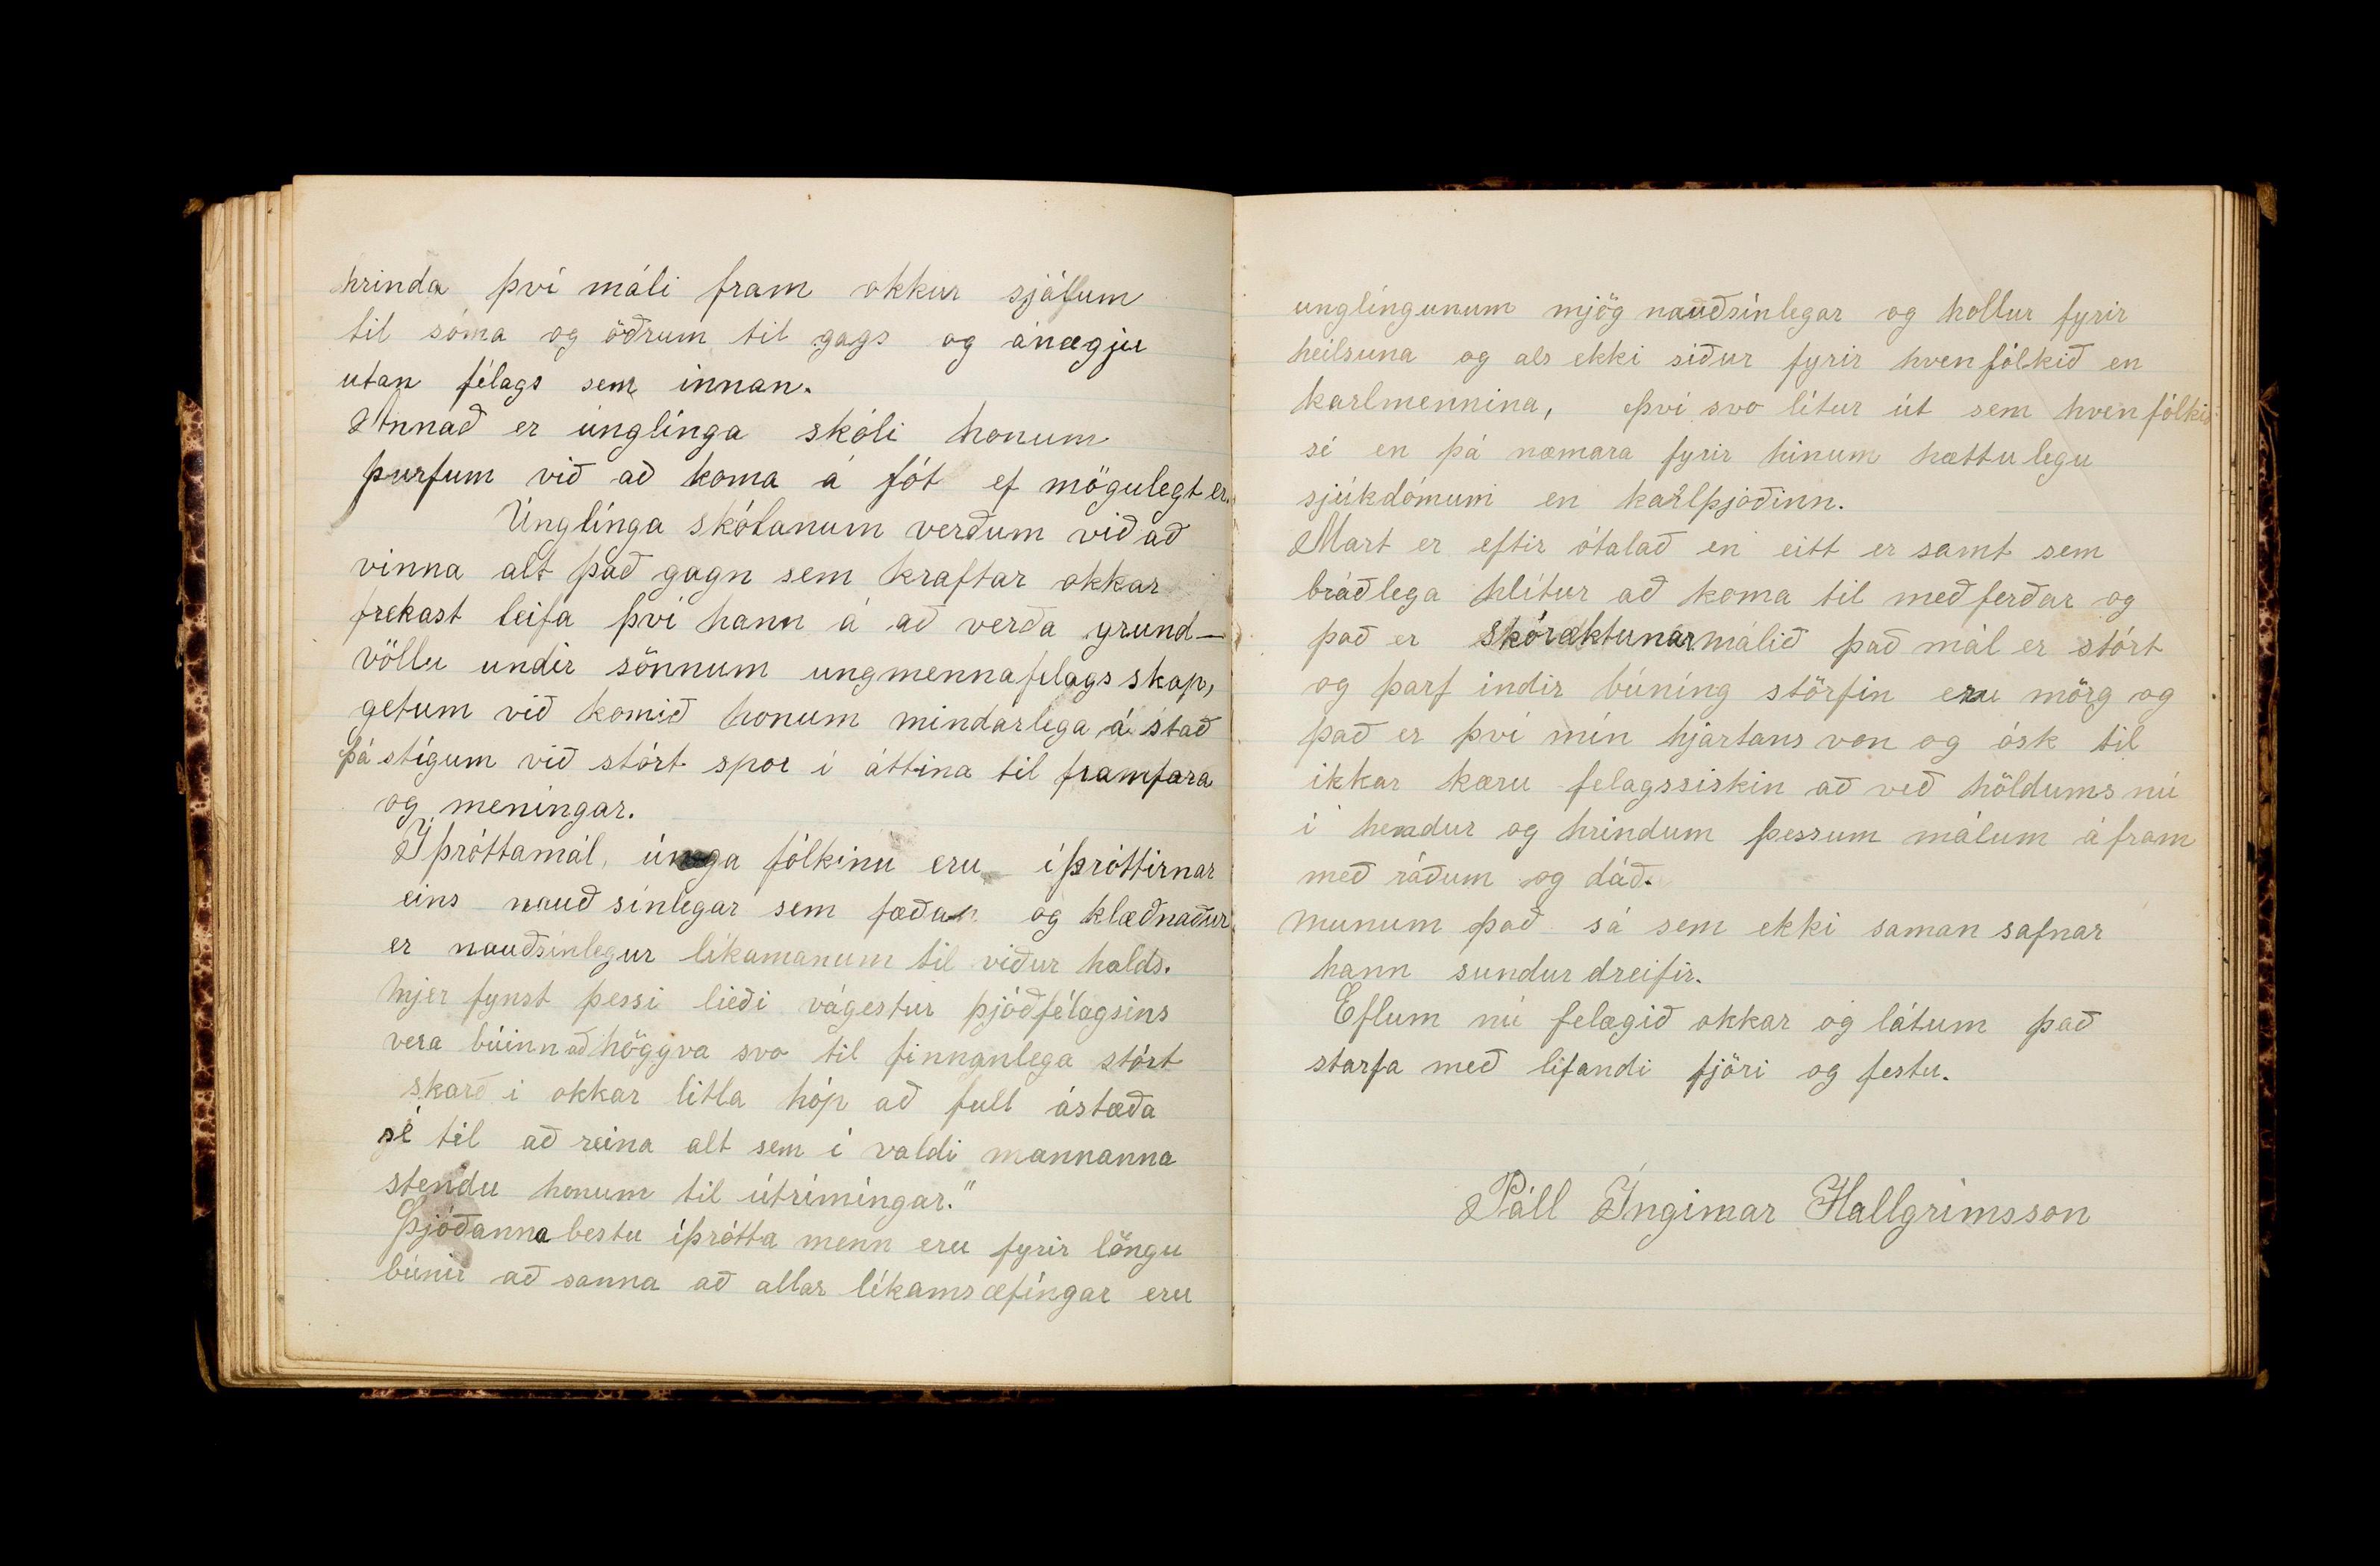 hrinda því máli fram okkur sjálfum
til sóma og öðrum til gags og ánægju
utan félags sem innan.
Annað er únglínga skóli honum
þurfum við að koma á fót ef mögulegt er.
Únglínga skólanum verðum við að
vinna alt það gagn sem kraftar okkar
frekast leifa því hann á að verða grund-
völlu undir sönnum ungmennafelags skap,
getum við komið honum mindarlega á stað
þá stígum við stórt spor í áttina til framfara
og meníngar.
Íþróttamál, únga fólkinu eru íþróttirnar
eins nauð sinlegar sem fæðan og klæðnaður
er nauðsinlegur líkamanum til viður halds.
Mjer fynst þessi lieði vágestur þjóðfélagsins
vera búinn að höggva svo til finnanlega stórt
skarð í okkar litla hóp að full ástæða
sé til að reina alt sem í valdi mannanna
stendu honum til útrímíngar."
Þjóðanna bestu íþrótta menn eru fyrir löngu
búnir að sanna að allar líkamsæfíngar eru
unglíngunum mjög nauðsínlegar og hollur fyrir
heilsuna og als ekki siður fyrir hvenfólkið en
karlmennina, því svo lítur út sem hvenfólkið
sé en þá næmara fyrir hinum hættu legu
sjúkdómum en karlþjóðinn.
Mart er eftir ótalað en eitt er samt sem
bráðlega hlítur að koma til með ferðar og
það er skóræktunarmálið það mál er stórt
og þarf indir búníng störfin eru mörg og
það er því mín hjartans von og ósk til
ikkar kæru felagssiskin að við höldums nú
í hendur og hrindum þessum málum áfram
með ráðum og dáð.
munum það sá sem ekki saman safnar
hann sundur dreifir.
Eflum nú felagið okkar og látum það
starfa með lifandi fjöri og festu.
Páll Íngimar Hallgrímsson